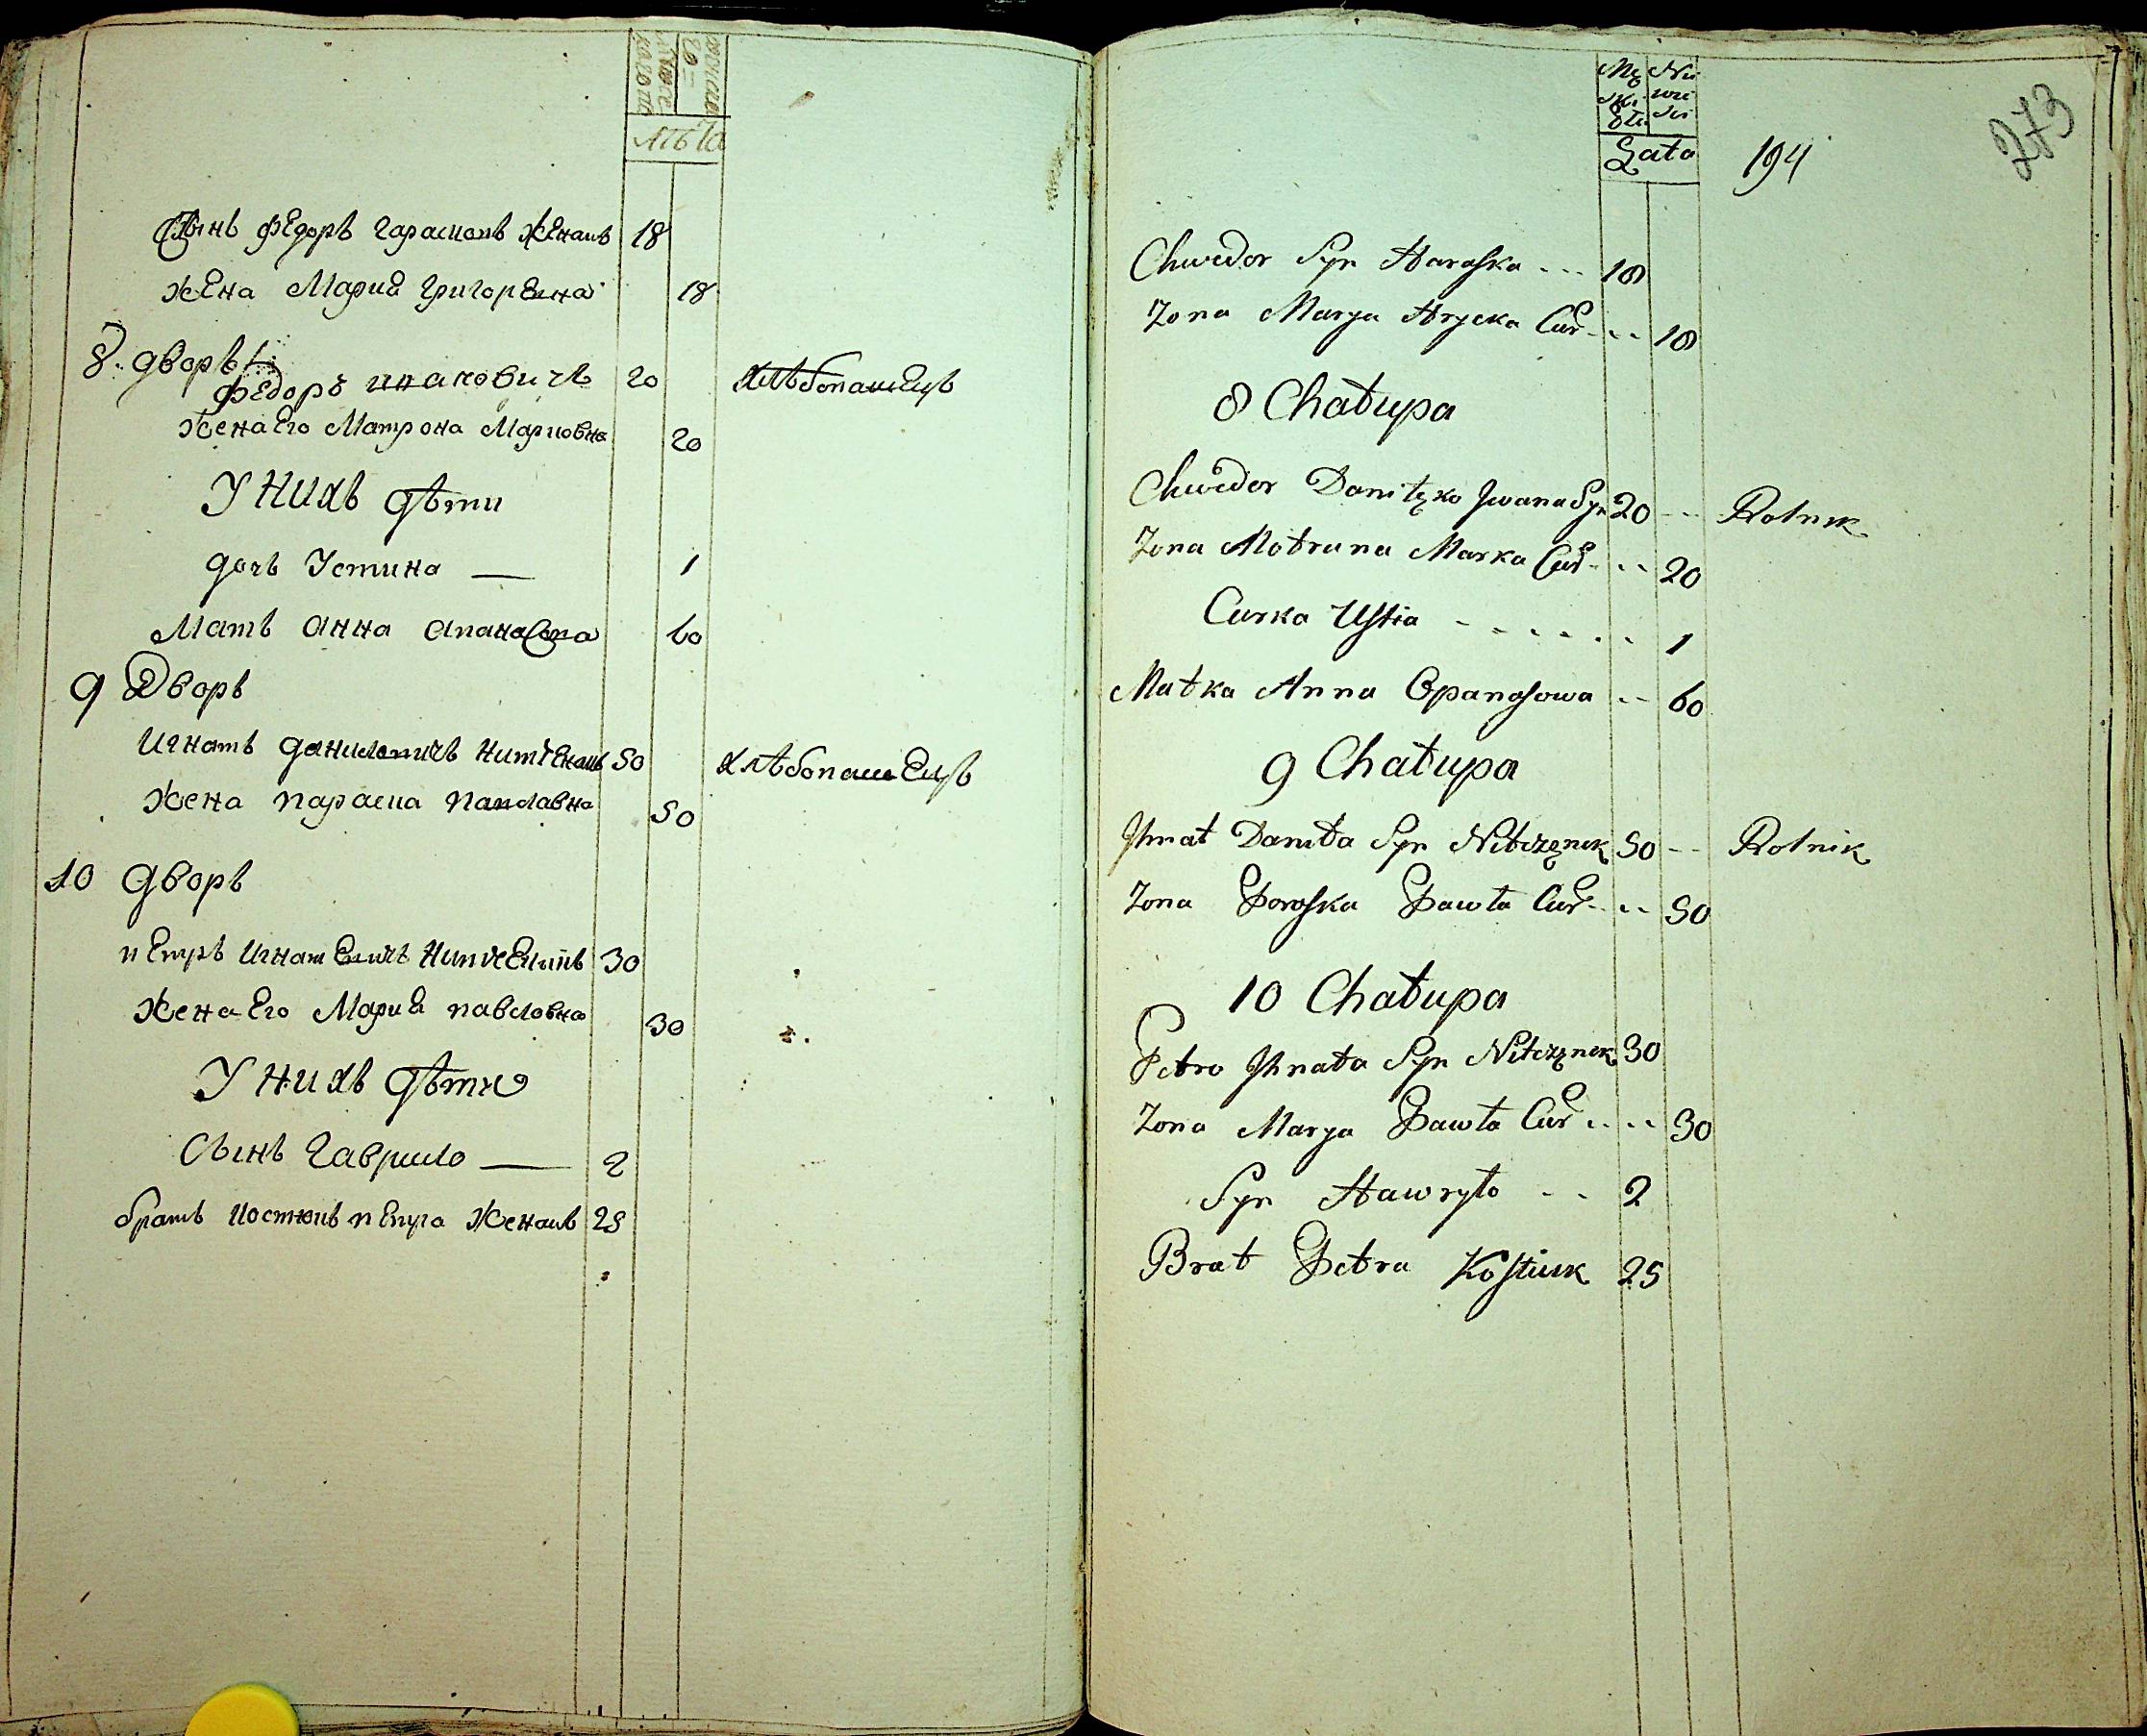 Лѣта
Сынъ Федоръ Гарасковъ Женатъ 18
Жена Мария Григорьевна 18
8. дворъ
Федоръ Ивановичъ 20 хлѣбопашецъ
Жена Его Матрона Марковна 20
У Нихъ дѣти
дочь Устина — 1
Мать Анна Апанасова 60
9 Дворъ
Игнатъ Даниловичъ Нитченко 50 хлѣбопашецъ
Жена Параска Павловна 50
10 дворъ
Петръ Игнатевичъ 30
Жена Его Мария Павловна 30
У Нихъ дѣти
Сынъ Гаврило — 2
братъ Костюкъ Петра Женатъ 25
273
Lata 194
Chwedor Syn Haraska --- 18
Zona Marya Hrycka Cur. -- 18
8 Chałupa
Chwedor Daniłzko Jwana Syn 20 -- Rolnik
Zona Motruna Marka Cur. -- 20
Curka Ustia - - - - - - 1
Matka Anna Opanasowa -- 60
9 Chałupa
Jhnat Daniła Syn Nitczenek 50 -- Rolnik
Zona Poraska Pawła Cur. -- 50
10 Chałupa
Petro Jhnata Syn Nitczenek 30
Zona Marya Pawła Cur. -- 30
Syn Hawryło -- 2
Brat Petra Kostiuk 25